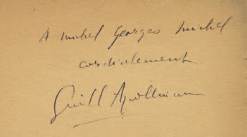 A Michel Georges Michel
cordialement
Guill Apollinaire